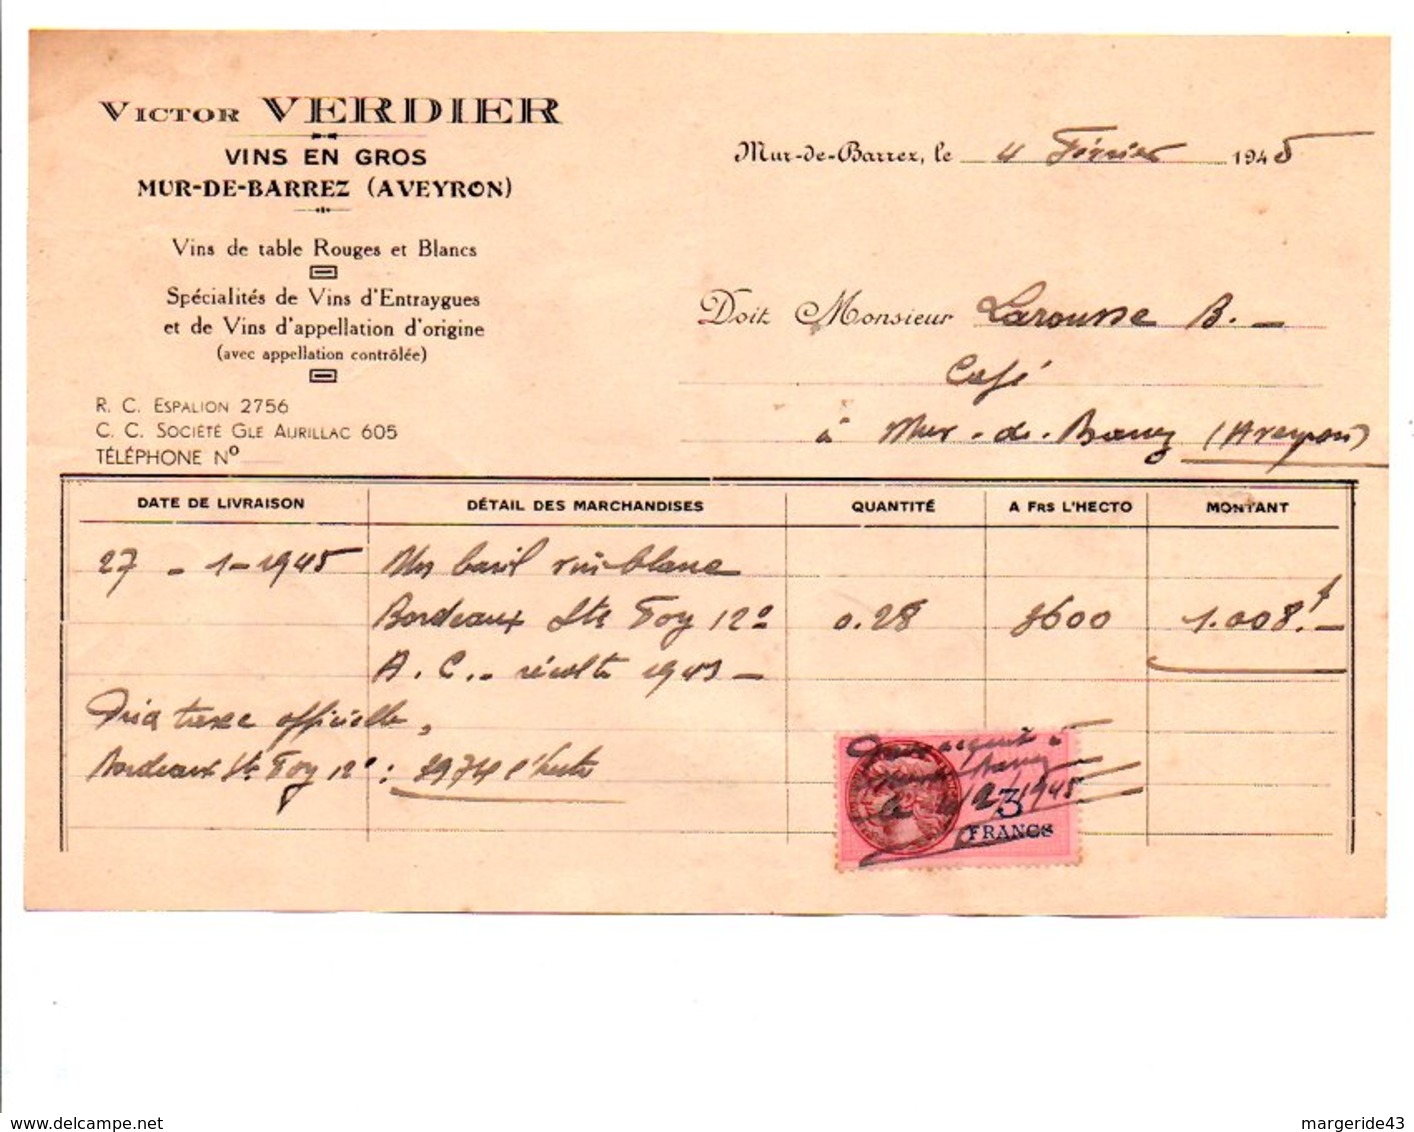 VICTOR VERDIER
VINS EN GROS
MUR-DE-BARREZ (AVEYRON)
Vins de table Rouges et Blancs
Spécialités de Vins d'Entraygues
et de Vins d'appellation d'origine
(avec appellation contrôlée)
R. C. ESPALION 2756
C. C. SOCIÉTÉ GLE AURILLAC 605
TÉLÉPHONE No
Mur-de-Barrez, le 4 Février 1945
Doit Monsieur Larousse B. -
Café
à Mur-de-Barrez (Aveyron)
DATE DE LIVRAISON DÉTAIL DES MARCHANDISES QUANTITÉ A FRS L'HECTO MONTANT
27 - 1 - 1945 Un baril vin blanc
Bordeaux Ste Foy 12° 0.28 3600 1.008.f -
A. C. - récolte 1943 -
Prix taxe officielle,
Bordeaux Ste Foy 12° : l'hecto
Pour acquit à
Mur de Barrez
le 4/2/1945
3
FRANCS
www.delcampe.net
margeride43